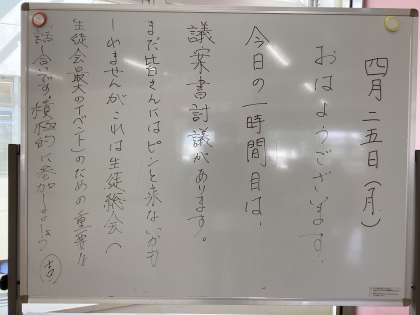 四月二五日(月)
おはようございます。
今日の一時間目は、
議案書討議があります。
まだ皆さんにはピンと来ないかも
しれませんが、これは生徒総会(
生徒会最大のイベント)のための重要な
話し合いです。積極的に参加しましょう